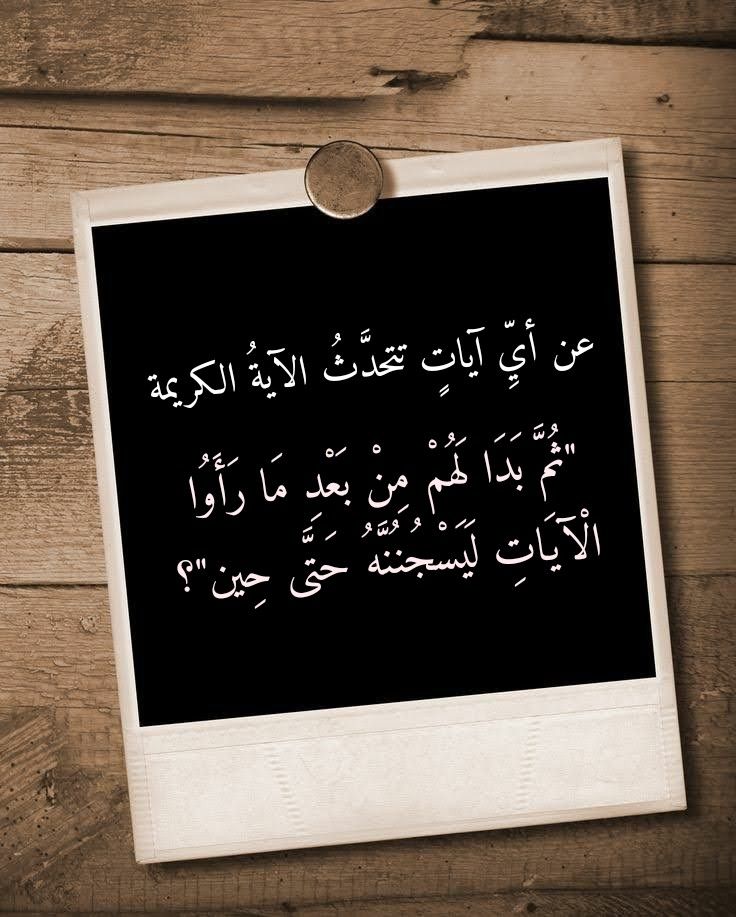 عن أيِّ آياتٍ تتحدَّثُ الآيةُ الكريمة
"ثُمَّ بَدَا لَهُمْ مِنْ بَعْدِ مَا رَأَوُا
الْآيَاتِ لَيَسْجُنُنَّهُ حَتَّى حِين"؟